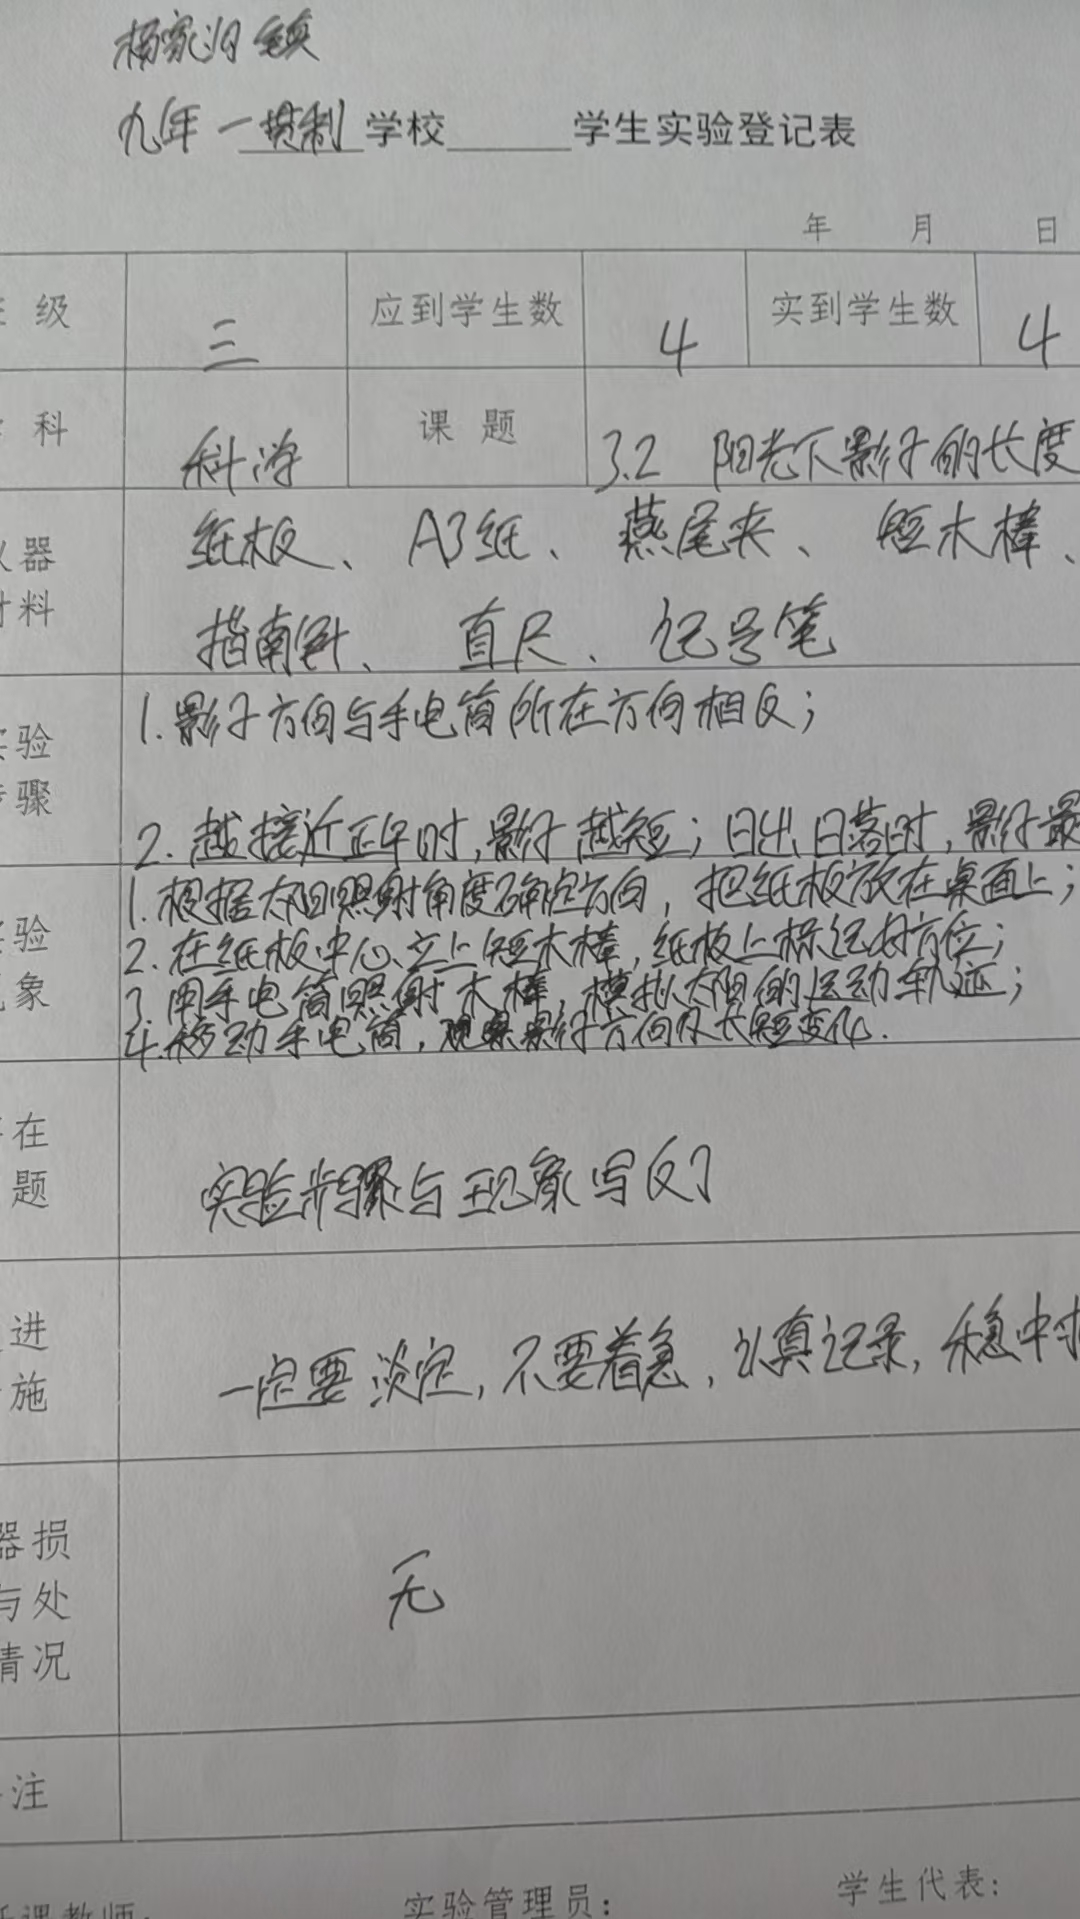 杨家沟镇
九年一贯制学校______学生实验登记表
年 月 日
级 三 应到学生数 4 实到学生数 4
科 科学 课题 3.2 阳光下影子的长度
器 纸板、A3纸、燕尾夹、短木棒、
料 指南针、直尺、记号笔
验 1.影子方向与手电筒所在方向相反;
骤 2.越接近正午时,影子越短;日出日落时,影子最
1.根据太阳照射角度确定方向,把纸板放在桌面上;
验 2.在纸板中心立上短木棒,纸板上标记好方位;
象 3.用手电筒照射木棒,模拟太阳的运动轨迹;
4.移动手电筒,观察影子方向及长短变化.
在
题 实验步骤与现象写反了
进
施 一定要淡定,不要着急,认真记录,稳中求
器损
与处 无
情况
注
课教师: 实验管理员: 学生代表: